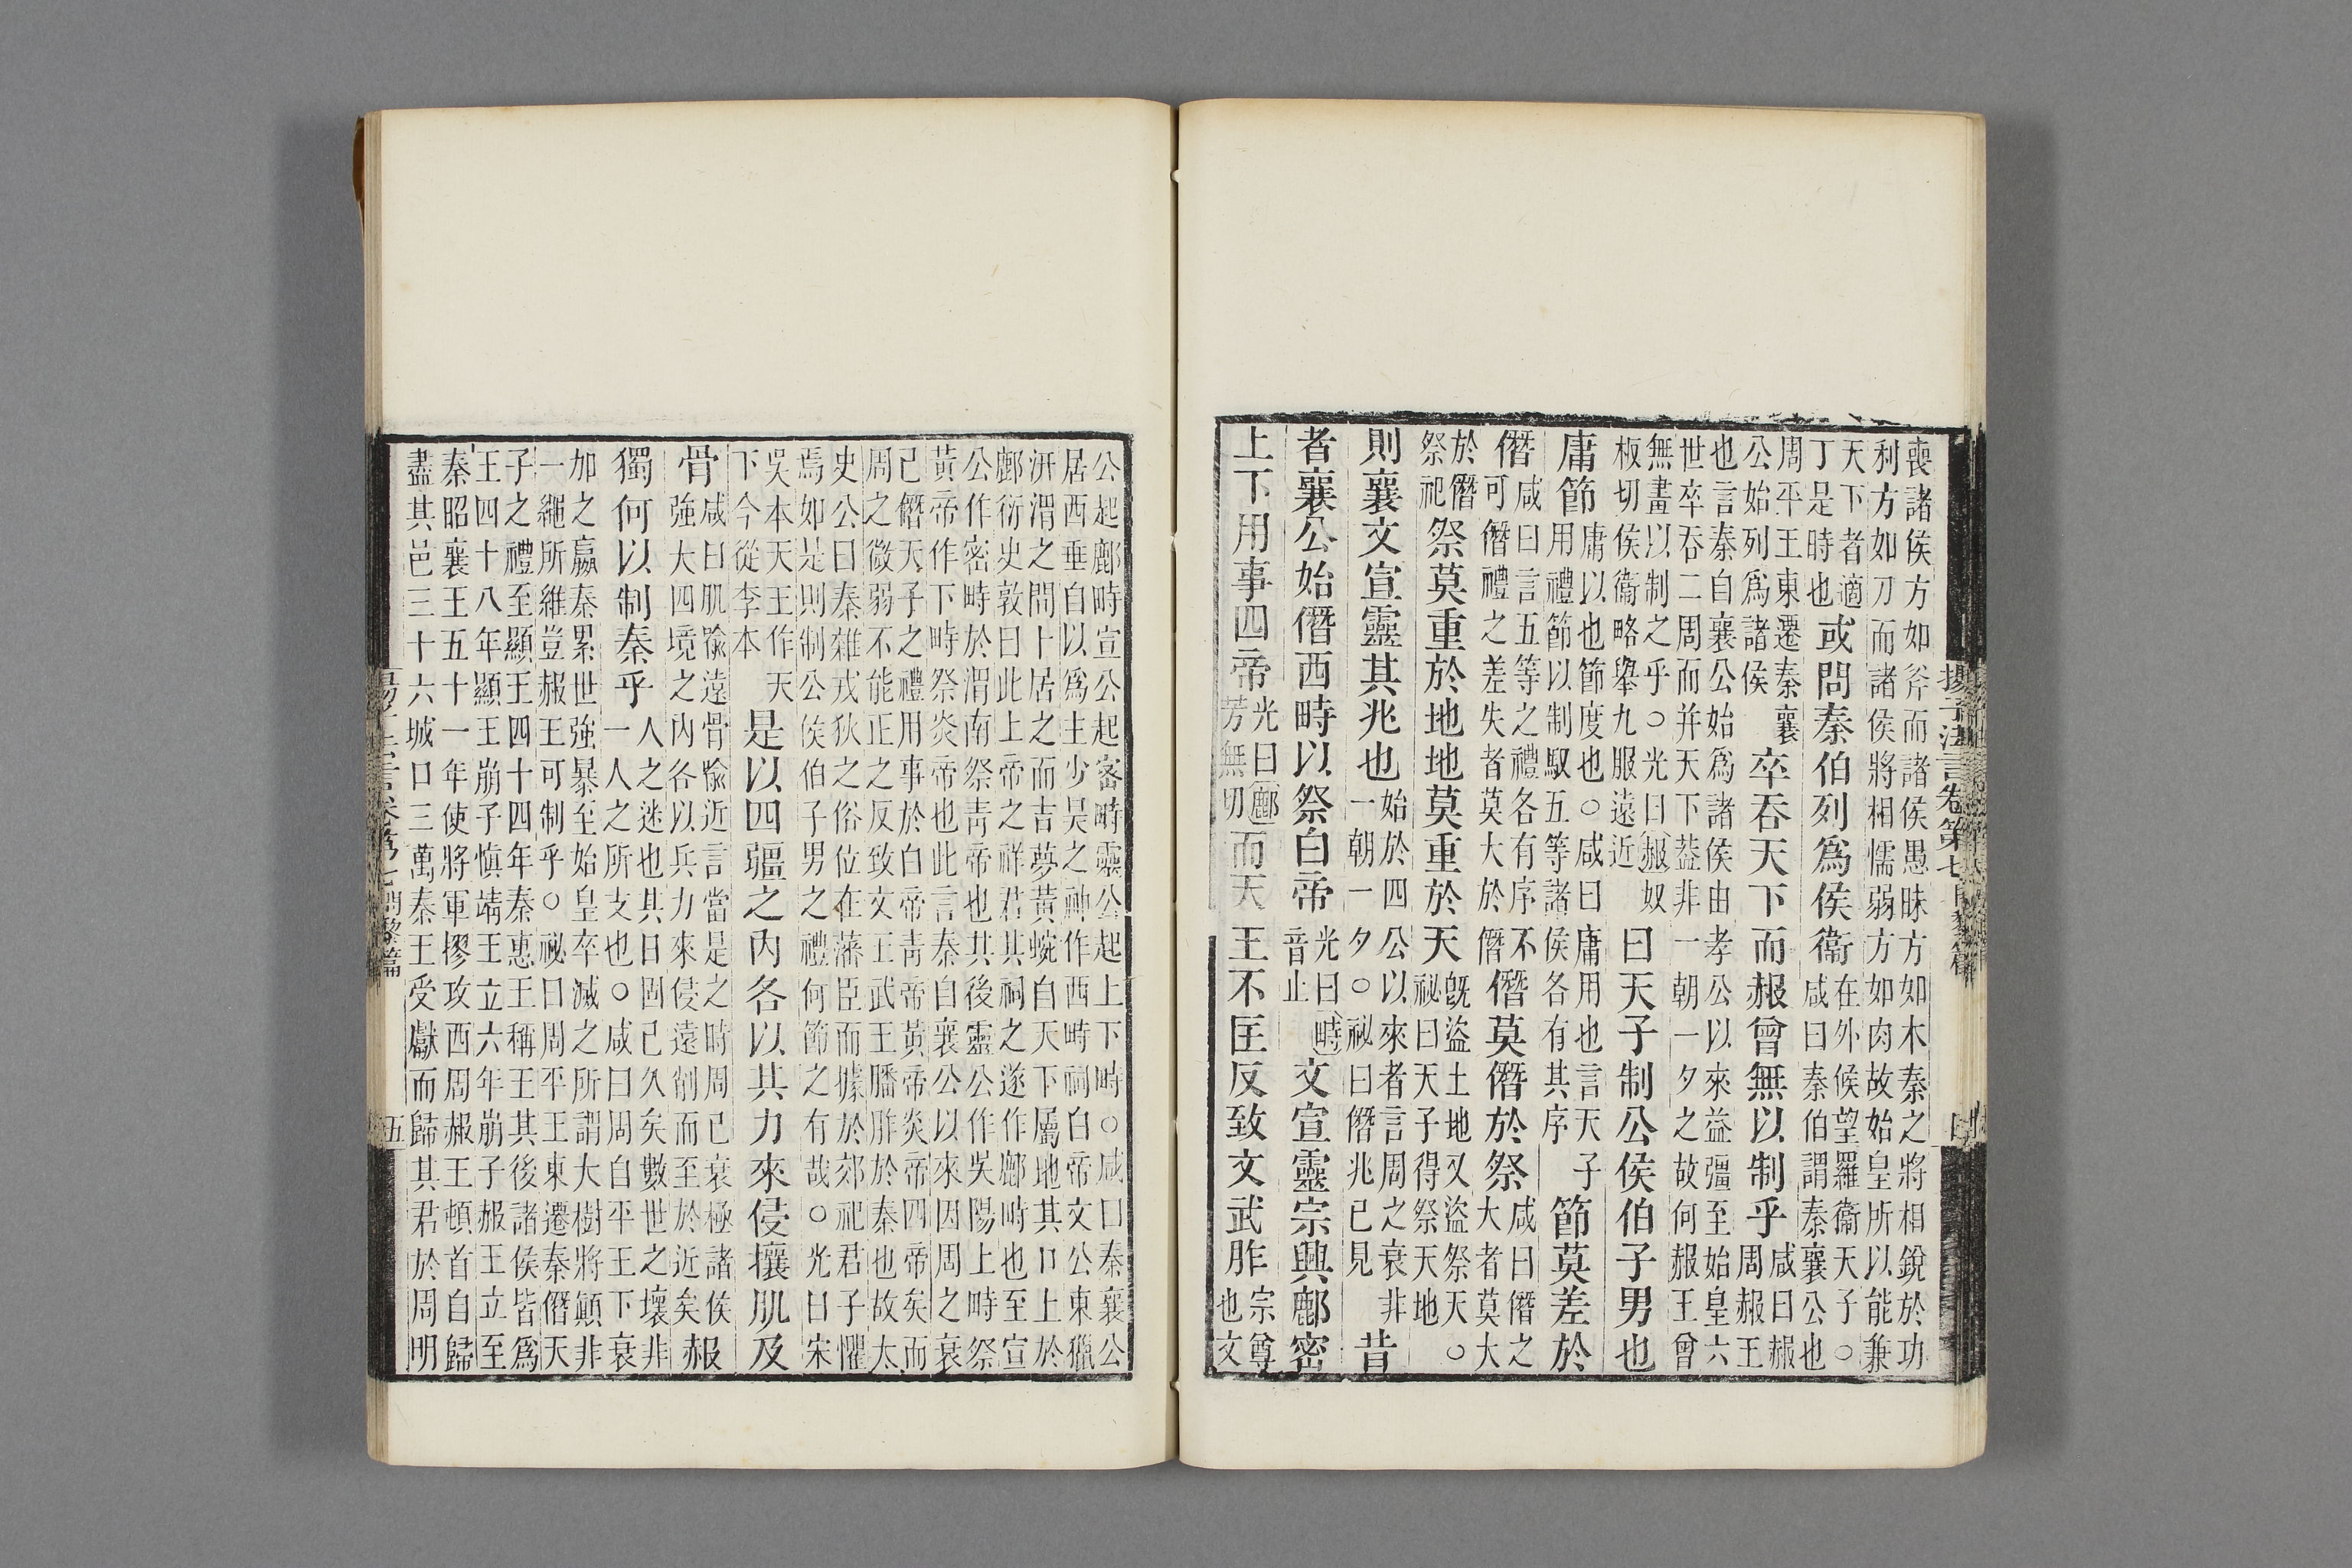 喪諸侯方如斧而諸侯愚昧方如木秦之將相銳於功
利方如刀而諸侯將相懦弱方如肉故始皇所以能兼
天下者適丁是時也或問秦伯列爲侯衞在外候望羅衞天子○咸曰秦伯謂秦襄公也
周平王東遷秦襄公始列爲諸侯卒吞天下而赧曾無以制乎咸曰赧周赧王
也言秦自襄公始爲諸侯由孝公以來益彊至始皇六
世卒吞二周而并天下葢非一朝一夕之故何赧王曾
無畫以制之乎○光曰赧奴板切侯衞略舉九服遠近曰天子制公侯伯子男也
庸節庸以也節度也○咸曰庸用也言天子用禮節以制馭五等諸侯各有其序節莫差於
僭咸曰言五等之禮各有序不可僭禮之差失者莫大於僭僭莫僭於祭咸曰僭之大者莫大
於僭祭祀祭莫重於地地莫重於天既盜土地又盜祭天○祕曰天子得祭天地
則襄文宣靈其兆也始於四公以來者言周之衰非一朝一夕○祕曰僭兆已見昔
者襄公始僭西畤以祭白帝光曰畤音止文宣靈宗興鄜密
上下用事四帝光曰鄜芳無切而天王不匡反致文武胙宗尊也文
揚子法言卷第七
公起鄜畤宣公起密畤靈公起上下畤○咸曰秦襄公
居西垂自以爲主少吴之神作西畤祠白帝文公東獵
汧渭之間卜居之而吉夢黃蛇自天下屬地其口上於
鄜衍史敦曰此上帝之祥君其祠之遂作鄜畤也至宣
公作密畤於渭南祭青帝也其後靈公作吳陽上畤祭
黃帝作下畤祭炎帝也此言秦自襄公以來因周之衰
已僭天子之禮用事於白帝青帝黃帝炎帝四帝矣而
周之微弱不能正之反致文王武王膰胙於秦也故太
史公曰秦雜戎狄之俗位在藩臣而據於郊祀君子懼
焉如是則制公侯伯子男之禮何節之有哉○光曰宋
吳本天王作天下今從李本是以四疆之內各以其力來侵攘肌及
骨咸曰肌喻遠骨喻近言當是之時周已衰極諸侯強大四境之內各以兵力來侵遠削而至於近矣赧
獨何以制秦乎人之迷也其日固已久矣數世之壞非一人之所支也○咸曰周自平王下衰
加之嬴秦累世強暴至始皇卒滅之所謂大樹將顛非
一繩所維豈赧王可制乎○祕曰周平王東遷秦僭天
子之禮至顯王四十四年秦惠王稱王其後諸侯皆爲
王四十八年顯王崩子愼靖王立六年崩子赧王立至
秦昭襄王五十一年使將軍摎攻西周赧王頓首自歸
盡其邑三十六城口三萬秦王受獻而歸其君於周明
五